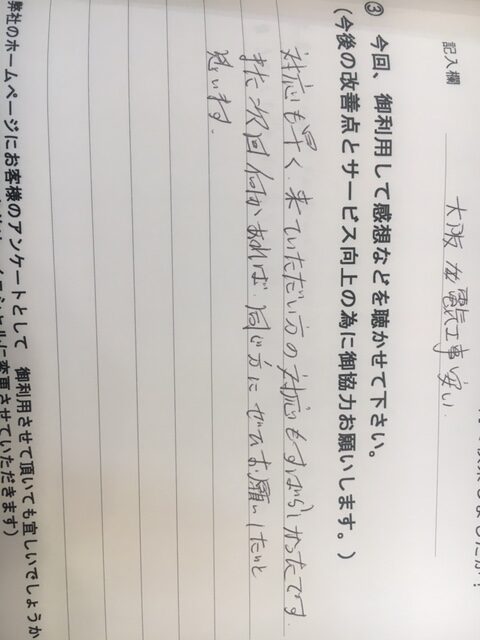 記入欄
大阪 電気工事 安い
③ 今回、御利用して感想などを聴かせて下さい。
(今後の改善点とサービス向上の為に御協力お願いします。)
対応も早く、来ていただい方の対応もすばらしかったです。
また次回何かあれば、同じ方にぜひお願いしたいと
思います。
弊社のホームページにお客様のアンケートとして 御利用させて頂いても宜しいでしょうか
イニシャルに変更させていただきます)